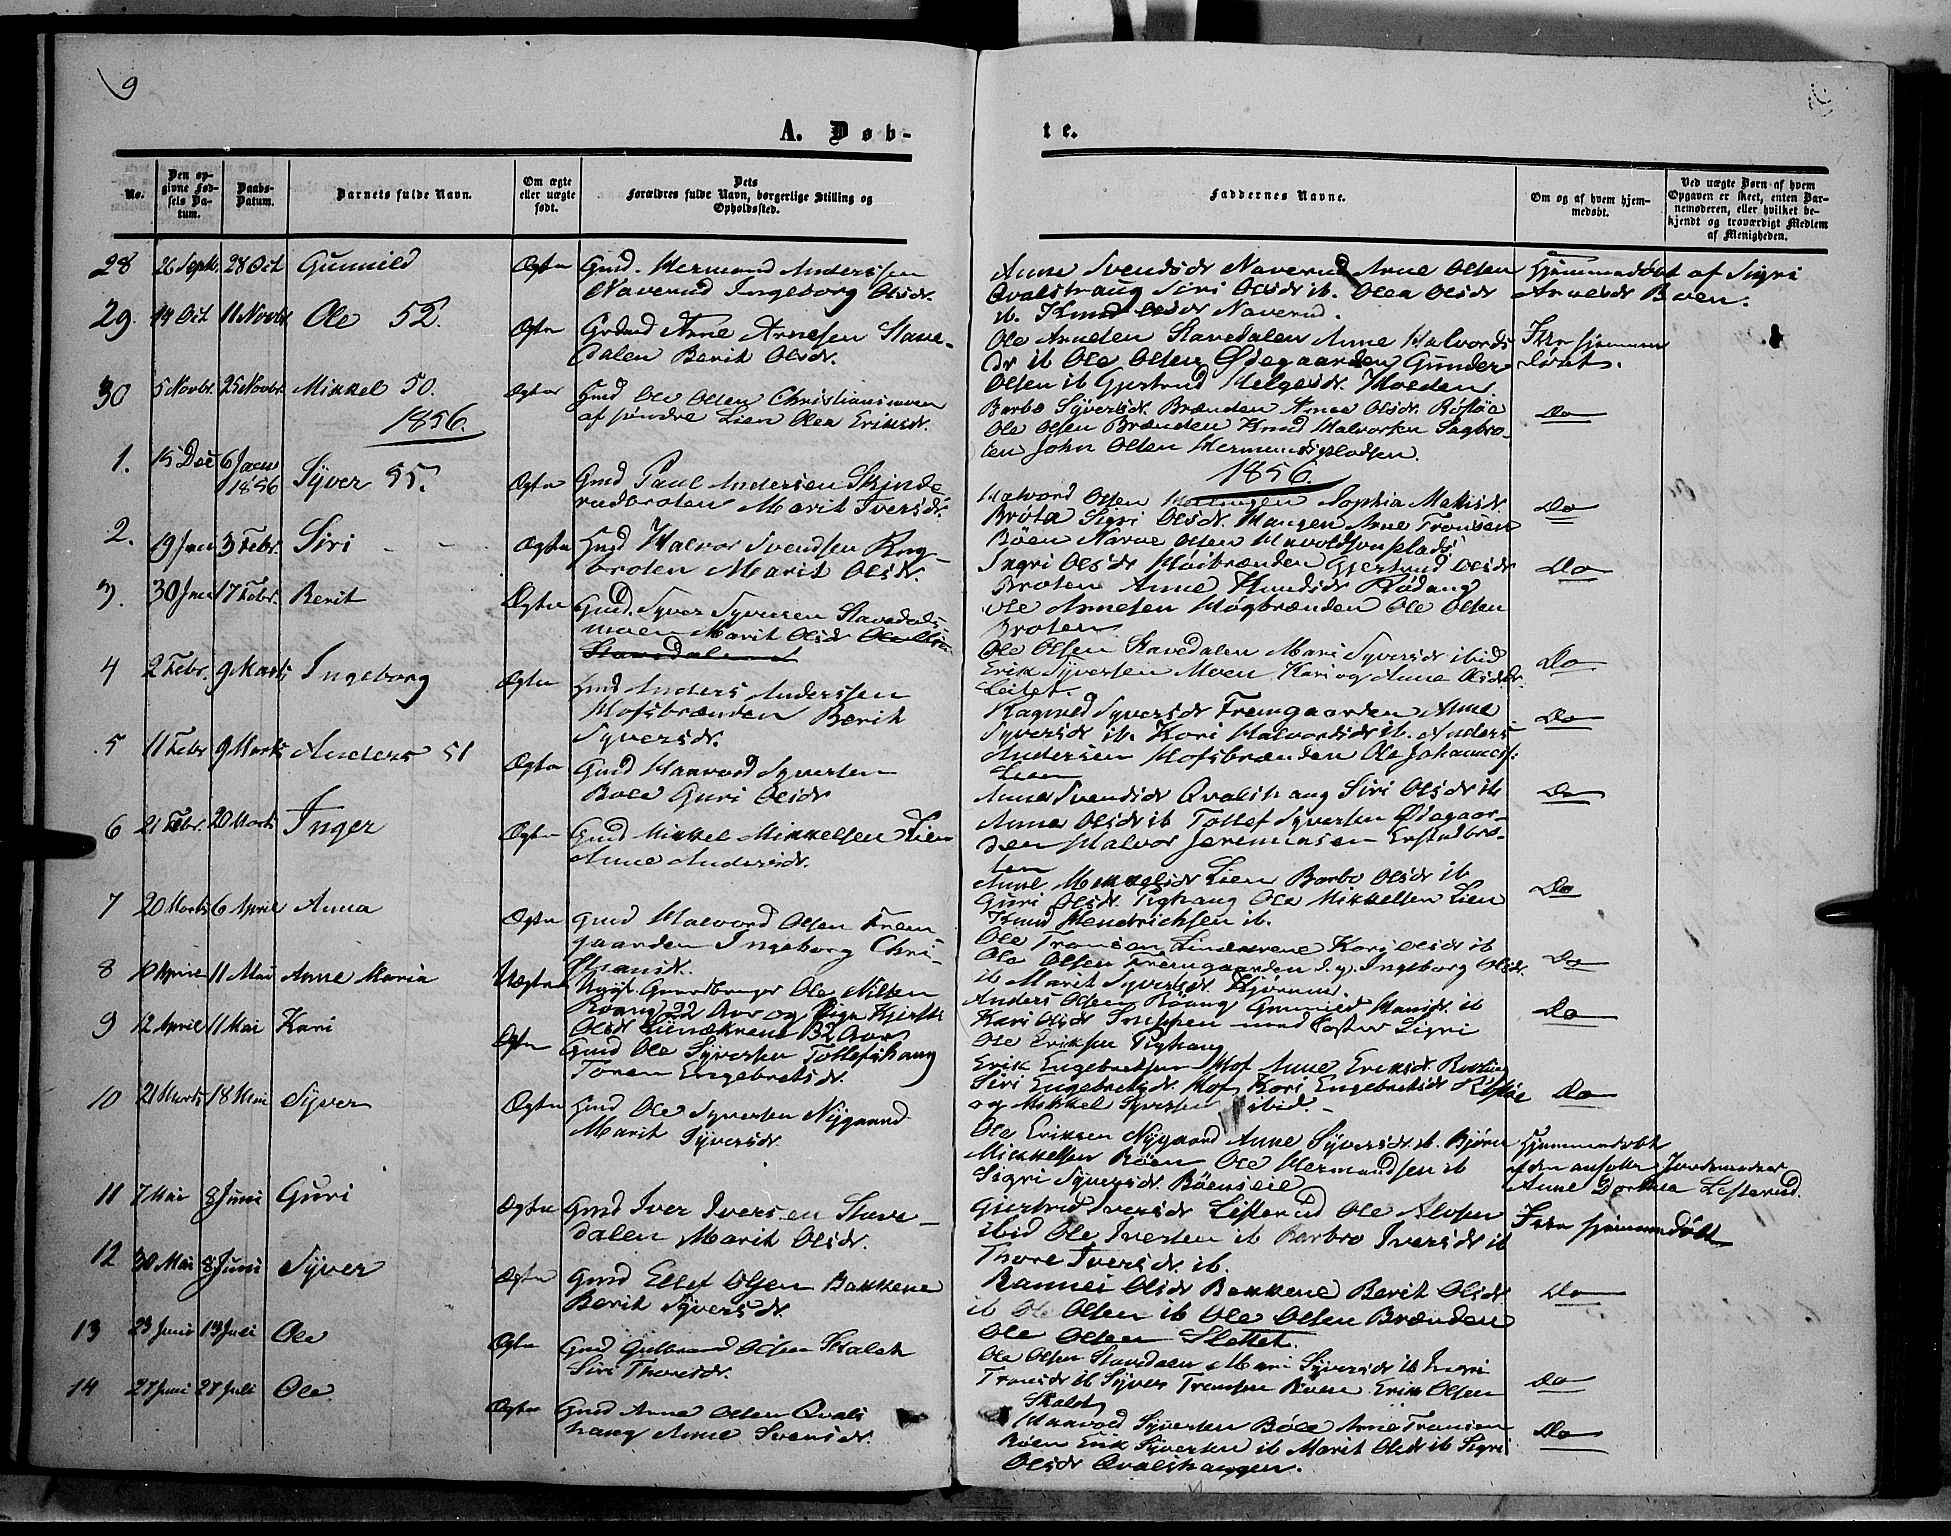 9
A. Døb-
te.
No.
Den op-
givne Fød-
sels Da-
tum.
Daabs-
Datum.
Barnets fulde Navn.
Om ægte
eller uægte
født.
Dets
Forældres fulde Navn, borgerlige Stilling og
Opholdssted.
Faddernes Navne.
Om og af hvem hjem-
medøbt.
Ved uægte Børn af hvem
Opgaven er skeet, enten Bar-
nemoderen, eller hvilket be-
kjendt og troværdigt Medlem
af Menigheden.
28 26 Septb. 28 Oct Gunnild Ægte Gmd. Hermand Anderssen
Naverud Ingeborg Olsdr.
Anne Svendsdr Naverud Arne Olsen
Qvalshaug Siri Olsdr ib. Olea Olsdr
ib. Knud Naverud.
Hjemmedøbt af Sigri
Arnesdr Bøen.
29. 14 Oct 11 Novbr Ole 52. Ægte Arne Arnesen Stave-
dalen Berit Olsdr.
Ole Arnesen Stavedalen Anne Halvords
dr ib Ole Olsen Ødegaarden Gunder
Olsen ib Gjertrud Helgesdr. Moeden
Ikke hjemme
døbt.
30 5 Novbr. 25 Novbr. Mikkel 50. Ægte Gmd Ole Olsen Christiansmoen
af søndre Lien Olea Eriksdr.
Barbo Syversdr. Brænden Anne Olsdr. Røstøe
Ole Olsen Brænden Knud Halvorsen Sagbro-
ten John Olsen Hermandspladsen.
Do
1856.
1856.
1. 15 Dec 6 Janu
1856 Syver 55. Ægte Gmd Paul Andersen Skinde
rudbroten Marit Iversdr.
Halvord Olsen Sophia
Brøta Sigri Olsdr. Haugen Arne Tronsen
Bøen Narve Olsen
Do
2. 19 Jan 3 Febr. Siri - - Ægte Gmd Halvor Svendsen
broten Marit Olsdr.
Ingri Olsdr Høibrænden Gjertrud Olsdr
Broten Anne Knudsdr Rødang
Ole Arnesen Høgbrænden Ole Olsen
Broten
Do
3. 30 Jan 17 Febr. Berit Ægte Gmd. Syver Syversen Stavedals
moen Marit Olsdr
Stavedalen
Ole Olsen Stavedalen Mari Syversdr ibid
Erik Syversen Moen Kari og Anne Olsdr.
Leitet.
Do
4 2 Febr. 9 Marts Ingeborg Ægte Gmd Anders Anderssen
Hofsbrænden Berit
Syversdr.
Ragnild Syversdr Fremgaarden Anne
Syversdr ib. Kari Halvordsdr ib. Anders
Andersen Hofsbrænden Ole Johannes.
Lien
Do
5 11 Febr 9 Marts Anders 51 Ægte Gmd Haavord Syversen
Bøle Guri Olsdr
Anne Svendsdr Qvalshaug Siri Olsdr ib
Anne Olsdr ib Tollef Syversen Ødegaar-
den Halvor Jeremiasen
ten
Do
6 21 Febr. 20 Marts Inger Ægte Gmd Mikkel Mikkelsen Lien
Anne Andersdr.
Anne Mikkelsdr Lien Barbo Olsdr ib
Guri Olsdr. Tighaug Ole Mikkelsen Lien
Knud Hendrichsen ib.
Do
7 20 Marts 6 April Anna Ægte Gmd Halvord Olsen Frem
gaarden Ingeborg Chri-
stiansdr.
Ole Tronsen Lindekrene Kari Olsdr ib
Ole Olsen Fremgaarden Ingeborg Olsdr.
ib Marit Syversdr.
Do
8 10 April 11 Mai Anne Maria Uægte Gaardbruger Ole Nilsen
Roang 22 Aar og Pige Kjersti
Olsdr 32 Aar
Anders Olsen Roang Gunnild ib
Kari Olsdr Snippen med Søster Sigri
Ole Eriksen Tighaug
Do
9 12 April 11 Mai Kari Ægte Gmd Ole Syversen Tollefshaug
Toren Engebretsdr.
Erik Engebretsen Hof Anne Eriksdr.
Siri Engebretsdr. Hof Kari Engebretsdr Røstøe
og Mikkel Syversen ibid.
Do
10 21 Marts 18 Mai Syver Ægte Gmd Ole Syversen Nygaard
Marit Syversdr.
Ole Eriksen Nygaard Anne Syversdr. ib. Bjørn
Mikkelsen Bøen Ole Hermandsen ib
Sigri Syversdr. Bøenseie
Hjemmedøbt
af den ansatte Jordemoder
Anne Dorthea Lesterud.
11 7 Mai 8 Juni Guri Ægte Gmd Iver Iversen Stave-
dalen Marit Olsdr.
Gjertrud Iversdr Lesterud Ole Alosen
ibid Ole Iversen ib Barbro Iversdr ib
Thore Iversdr. ib.
Ikke hjemmedøbt
12 30 Mai 8 Juni Syver Ægte Gmd Ellef Olsen Bakkene
Berit Syversdr.
Rannei Olsdr Bakkene Berit Olsdr
ib Ole Olsen ib Ole Olsen Brænden
Ole Olsen Slettet.
Do
13 23 Juni 13 Juli Ole Ægte Gmd Gulbrand Olsen Skalet
Siri Thoresdr.
Ole Olsen Stavedalen Mari Syversdr ib Ingri
Tronsdr ib Syver Tronsen Bøen Erik Olsen
Skalet
Do
14 27 Juni 27 Juli Ole Ægte Gmd Arne Olsen Qvals
haug Anne Svensdr.
Haavold Syversen Bøle Arne Tronsen
Bøen Erik Syversen ib Marit Olsdr ib Sigri
Olsdr Qvalshaugen.
Do